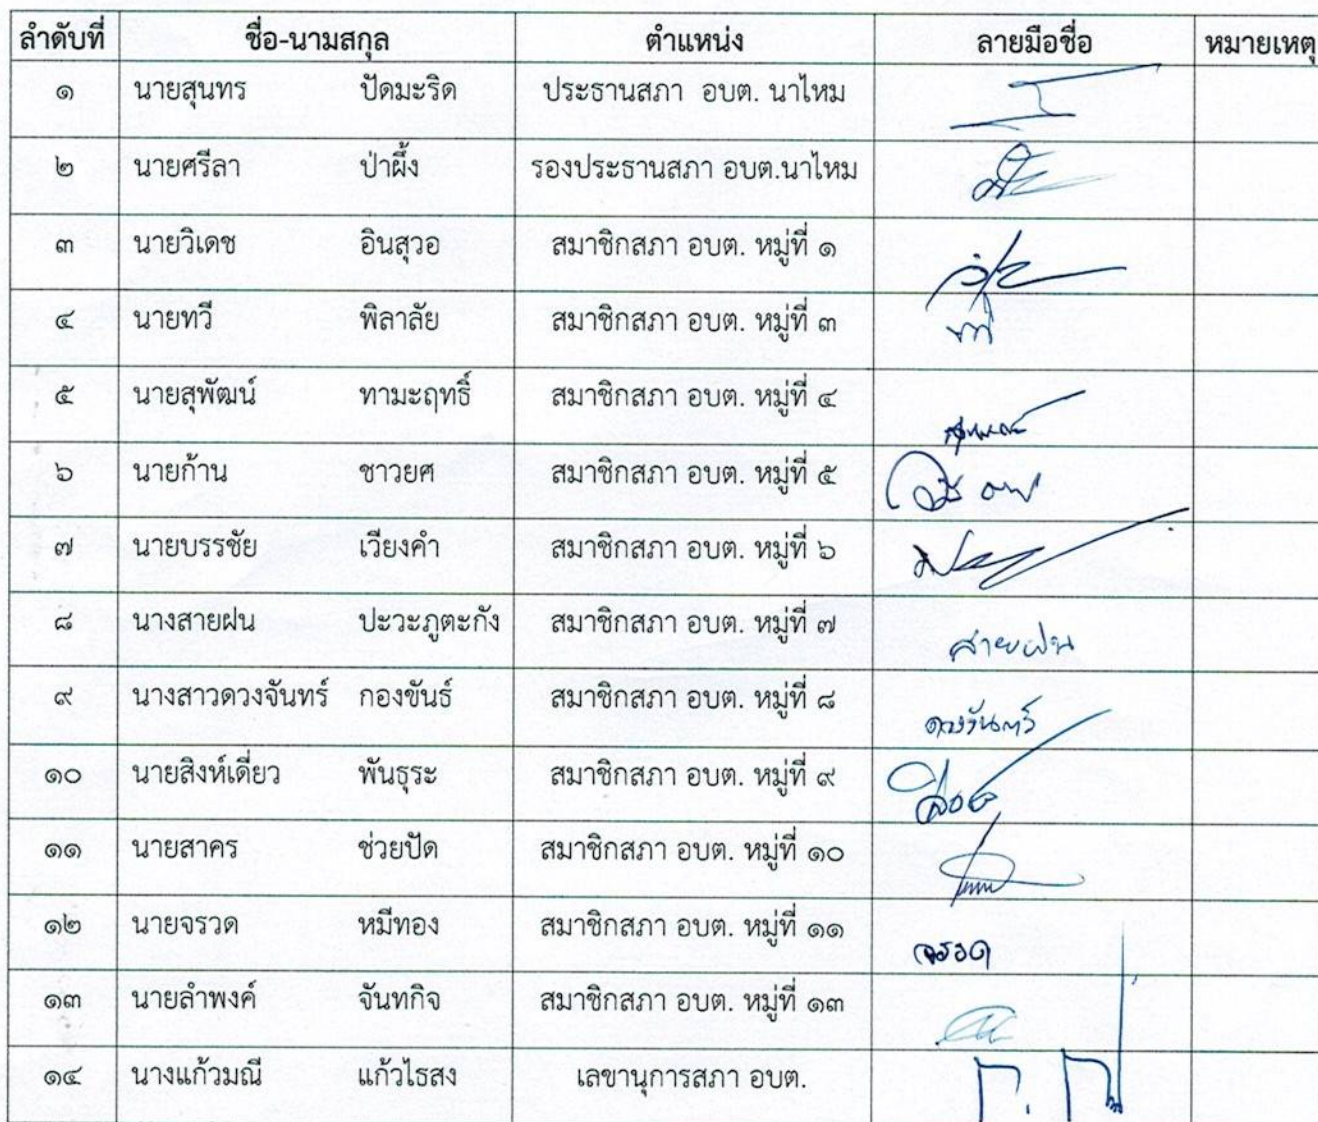 ลำดับที่ ชื่อ-นามสกุล ตำแหน่ง ลายมือชื่อ หมายเหตุ
๑ นายสุนทร ปัดมะริด ประธานสภา อบต. นาไหม
๒ นายศรีลา ป่าผึ้ง รองประธานสภา อบต.นาไหม
๓ นายวิเดช อินสุวอ สมาชิกสภา อบต. หมู่ที่ ๑
๔ นายทวี พิลาลัย สมาชิกสภา อบต. หมู่ที่ ๓
๕ นายสุพัฒน์ ทามะฤทธิ์ สมาชิกสภา อบต. หมู่ที่ ๔
๖ นายก้าน ชาวยศ สมาชิกสภา อบต. หมู่ที่ ๕
๗ นายบรรชัย เวียงคำ สมาชิกสภา อบต. หมู่ที่ ๖
๘ นางสายฝน ปะวะภูตะกัง สมาชิกสภา อบต. หมู่ที่ ๗ สายฝน
๙ นางสาวดวงจันทร์ กองขันธ์ สมาชิกสภา อบต. หมู่ที่ ๘ ดวงจันทร์
๑๐ นายสิงห์เดี่ยว พันธุระ สมาชิกสภา อบต. หมู่ที่ ๙
๑๑ นายสาคร ช่วยปัด สมาชิกสภา อบต. หมู่ที่ ๑๐
๑๒ นายจรวด หมีทอง สมาชิกสภา อบต. หมู่ที่ ๑๑ จรวด
๑๓ นายลำพงค์ จันทกิจ สมาชิกสภา อบต. หมู่ที่ ๑๓
๑๔ นางแก้วมณี แก้วไธสง เลขานุการสภา อบต.